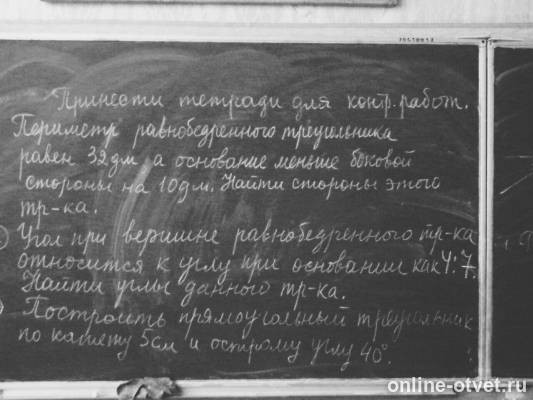 Принести тетради для контр. работ.
Периметр равнобедренного треугольника
равен 32дм, а основание меньше боковой
стороны на 10дм. Найти стороны этого
тр-ка.
Угол при вершине равнобедренного тр-ка
относится к углу при основании как 4:7.
Найти углы данного тр-ка.
Построить прямоугольный треугольник
по катету 5см и острому углу 40°.
online-otvet.ru